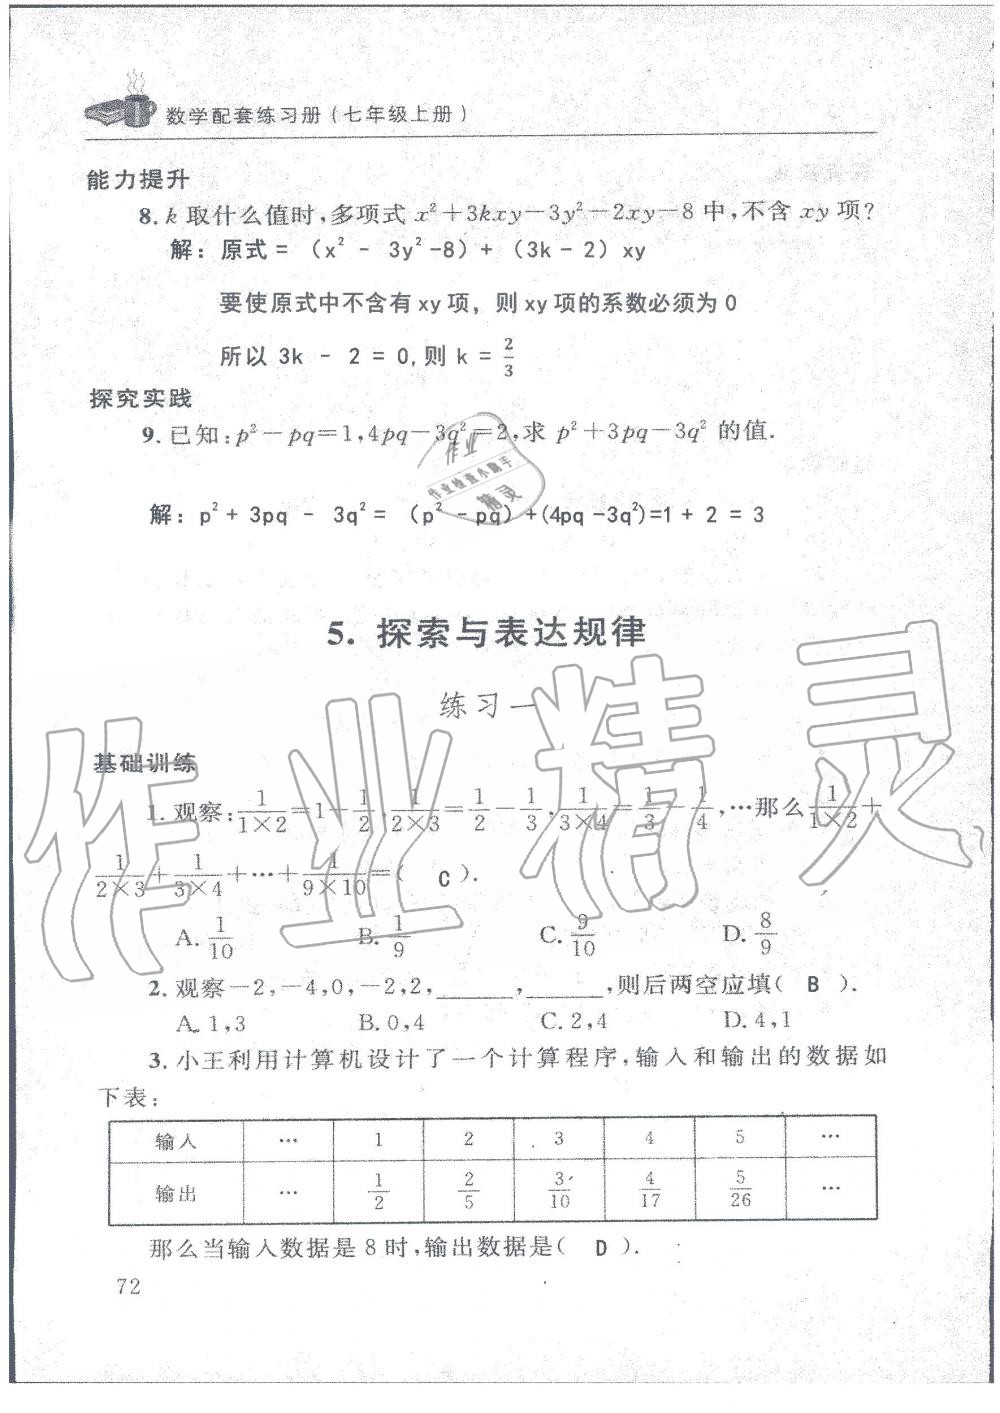 数学配套练习册(七年级上册)
能力提升
8. k取什么值时,多项式 x²+3kxy−3y²−2xy−8中,不含 xy 项?
解：原式 = （x² - 3y² -8）+ （3k - 2）xy
要使原式中不含有 xy 项，则 xy 项的系数必须为 0
所以 3k - 2 = 0,则 k = 2/3
探究实践
9. 已知:p²−pq=1,4pq−3q²=2,求 p²+3pq−3q² 的值.
作业
作业检查小助手
精灵
解：p² + 3pq - 3q² = （p² - pq）+(4pq -3q²)=1 + 2 = 3
5. 探索与表达规律
练习一
基础训练
1. 观察:1/(1×2)=1−1/2,1/(2×3)=1/2−1/3,1/(3×4)=1/3−1/4,…那么1/(1×2)+
1/(2×3)+1/(3×4)+…+1/(9×10)=( C ).
A. 1/10 B. 1/9 C. 9/10 D. 8/9
2. 观察−2,−4,0,−2,2,______,______,则后两空应填( B ).
A. 1,3 B. 0,4 C. 2,4 D. 4,1
3. 小王利用计算机设计了一个计算程序,输入和输出的数据如
下表:
输入 … 1 2 3 4 5 …
输出 … 1/2 2/5 3/10 4/17 5/26 …
那么当输入数据是 8 时,输出数据是( D ).
72
作业精灵